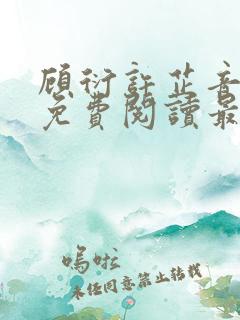 顾衍許芷音
免費閱讀最
嗚啦
未经同意禁止转载